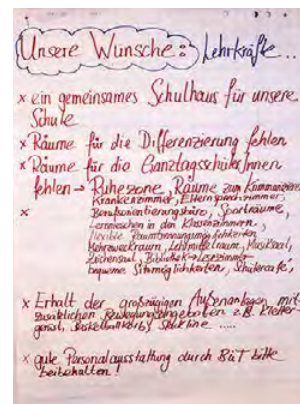 Unsere Wünsche: Lehrkräfte..
x ein gemeinsames Schulhaus für unsere
Schule
x Räume für die Differenzierung fehlen
x Räume für die GanztagsschülerInnen
fehlen → Ruhezone, Räume zum
Krankenzimmer, Elternsprechzimmer,
x Berufsorientierungsbüro, Sporträume,
Lernnischen in den Klassenzimmern,
flexible
Mehrzweckraum, Lehrmittelraum, Musiksaal,
Zeichensaal, Bibliothek + Lesezimmer
bequeme Sitzmöglichkeiten, Schülercafé,
x Erhalt der großzügigen Außenanlagen mit
zusätzlichen Bewegungsangeboten z.B. Kletter-
gerüst, Basketballkorb, .....
x gute Personalausstattung durch BuT bitte
beibehalten!